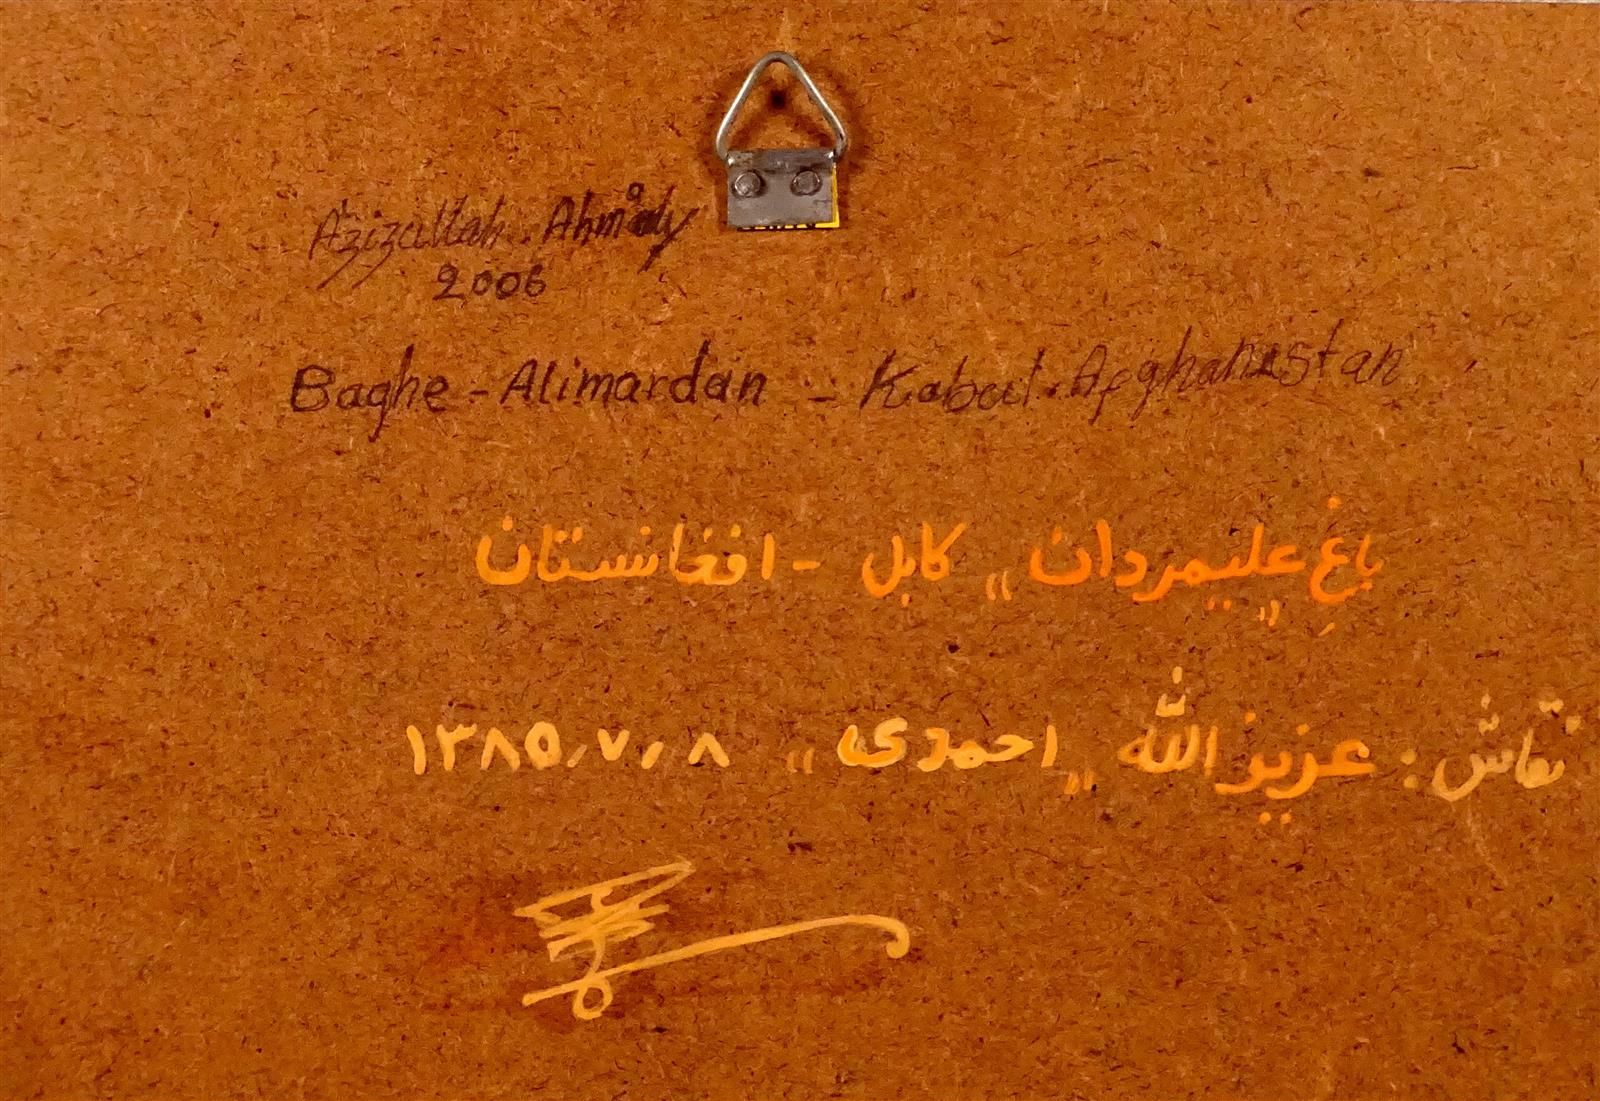 Azizullah. Ahmady
2006
Baghe - Alimardan - Kabul. Afghanistan
باغِ علیمردان کابل - افغانستان
نقاش: عزیز الله "احمدی" ۱۳۸۵٫۷٫۸